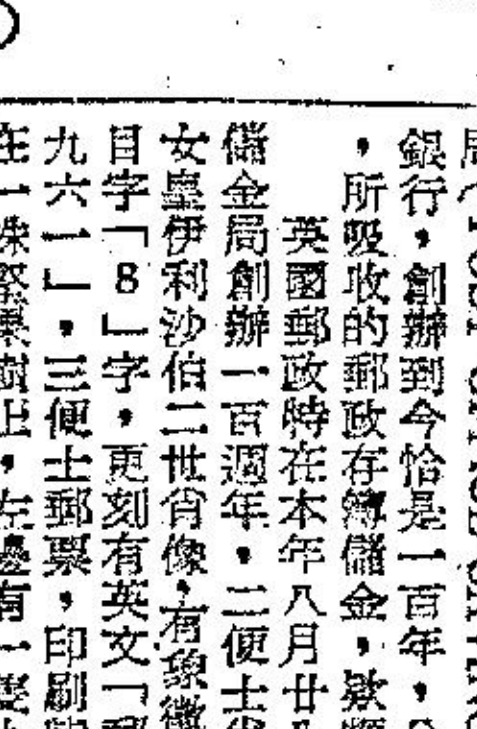 銀行,創辦到今恰是一百年,
,所吸收的郵政存簿儲金,款
英國郵政特在本年八月廿
儲金局創辦一百週年,二便士
女皇伊利沙伯二世肖像,有象徵
目字「8」字,更刻有英文「郵
九六一」,三便士郵票,印刷
在一株堅果樹上,左邊有一隻